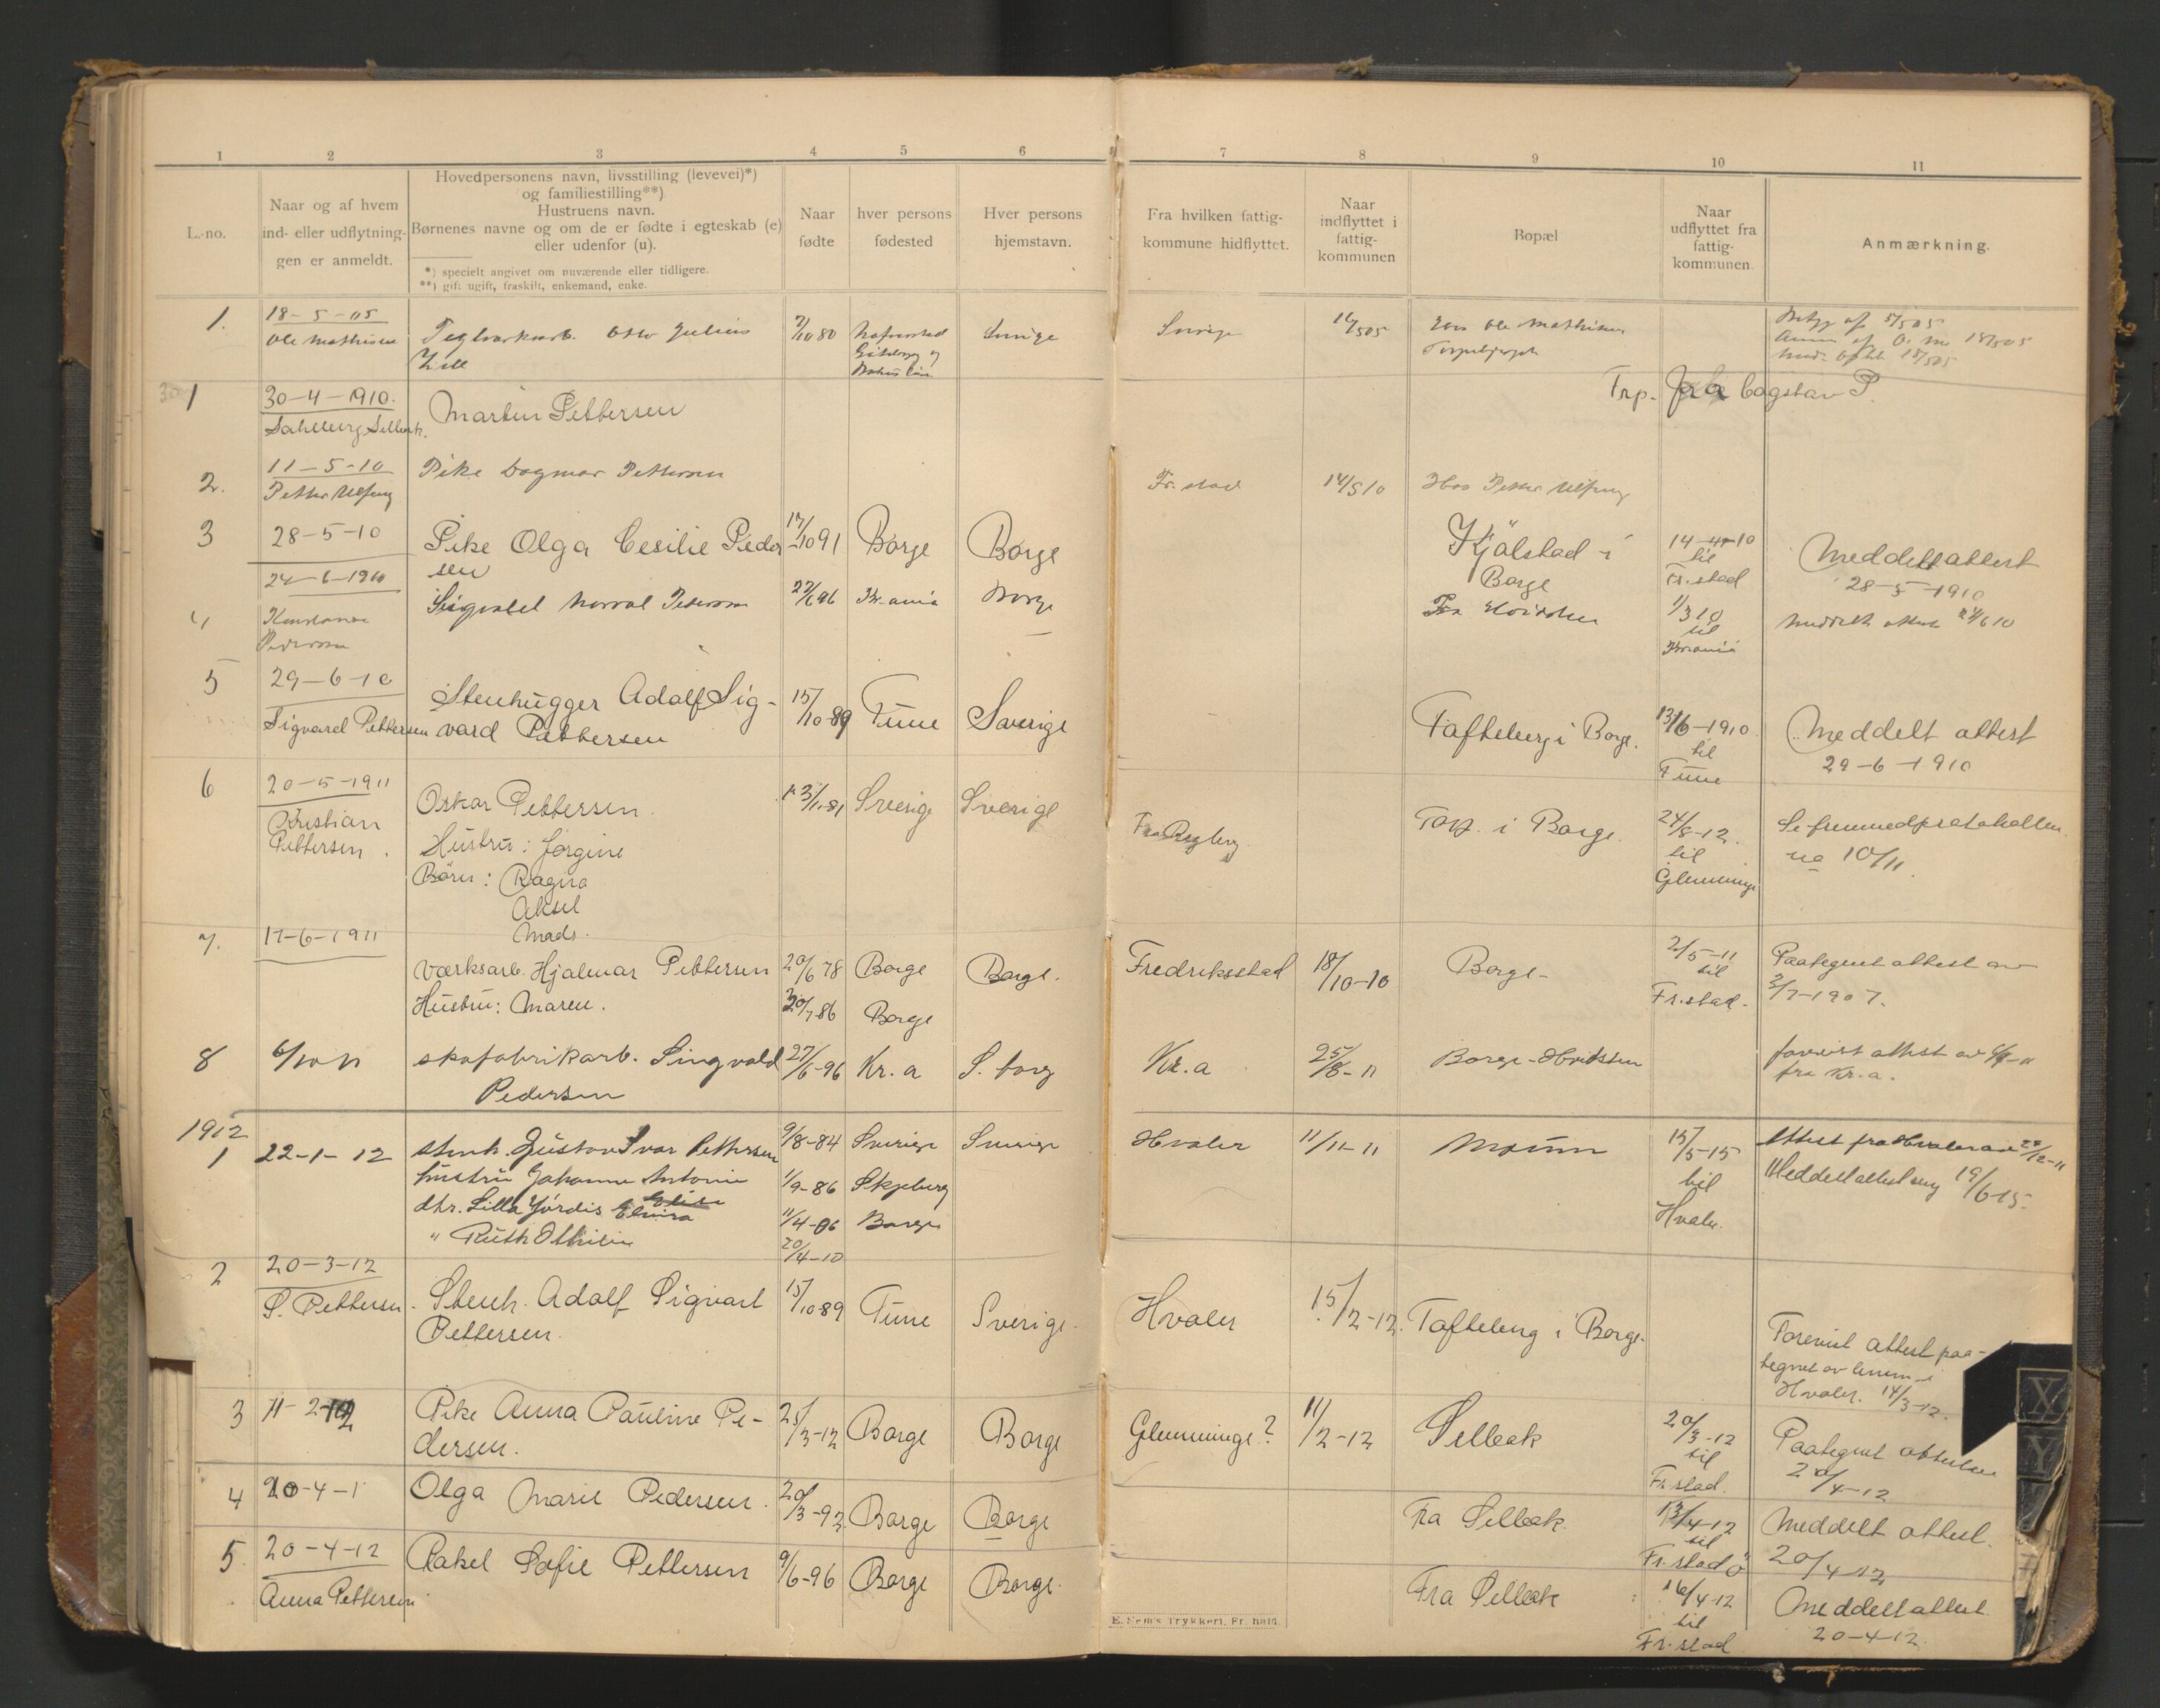 1 2 3 4 5 6 7 8 9 10 11
L.-no.
Naar og af hvem
ind- eller udflytnin-
gen er anmeldt.
Hovedpersonens navn, livsstilling (levevei)*)
og familiestilling**)
Hustruens navn.
Børnenes navne og om de er fødte i egteskab (e)
eller udenfor (u).
*) specielt angivet om nuværende eller tidligere.
**) gift ugift, fraskilt, enkemand, enke.
Naar
fødte
hver persons
fødested
Hver persons
hjemstavn.
Fra hvilken fattig-
kommune hidflyttet.
Naar
indflyttet i
fattig-
kommunen
Bopæl
Naar
udflyttet fra
fattig-
kommunen.
Anmærkning.
1. 18-5-05
Ole Mathisen
Otto Julius
7/10 80
Sverige
Sverige
14/5 05
Hos Ole Mathisen
1 30-4-1910.
Martin Pettersen
Trp. fra bogstav P.
2. 11-5-10
Petter Ulfeng
Pike Dagmar Pettersen
Fr.stad
14/5 10
Hos Petter Ulfeng
3 28-5-10
Pike Olga Cesilie Peder
sen
17/10 91
Borge
Borge
Kjølstad i
Borge
14-4-10
til
Fr.stad
Meddelt attest
28-5-1910
4 24-6-1910
Konstanse
Pedersen
Sigvald Pedersen
27/6 96
Kr.ania
Borge
Fra
1/3 10
til
Kr.ania
Meddelt attest 24/6 10
5 29-6-10
Sigvard Pettersen
Stenhugger Adolf Sig-
vard Pettersen
15/10-89
Tune
Sverige
Tofteberg i Borge.
13/6-1910
til
Tune
Meddelt attest
29-6-1910
6 20-5-1911
Kristian
Pettersen.
Oskar Pettersen.
Hustru: Jørgine
Børn: Ragna
Aksel
Mads.
Sverige
Sverige
Torp. i Borge.
24/8-12.
til
Glemminge
Se fremmedprotokollen
no 10/11.
7. 17-6-1911
Værksarb. Hjalmar Pettersen
Hustru: Maren.
20/6 78
30/7-86
Borge
Borge
Borge.
Fredriksstad
18/10-10
Borge-
2/5-11
til
Fr.stad.
Paategnet attest av
3/7-1907.
8 6/10 11
skofabrikarb. Singvald
Pedersen
27/6-96
Kr.a
S.borg
Kr.a
25/8-11
Borge-
forevist attest av
fra Kr.a.
1912
1 22-1-12
stenh. Gustav Ivar Pettersen
hustru Johanne Antonie
dtr. Lilla Hjørdis Elise Elvira
" Ruth Othilie
9/8-84
1/9-86
11/4-06
20/4-10
Sverige
Skjeberg
Borge
Sverige
Hvaler
11/11-11
Moum
15/5-15
til
Hvaler.
Attest fra Hvaler av 22/12-11
Meddelt attest 19/6-15.
2 20-3-12
S. Pettersen.
Stenh. Adolf Sigvart
Pettersen.
15/10-89
Tune
Sverige.
Hvaler
15/2-12.
Tofteberg i Borge.
Forevist attest paa-
tegnet av lensm. i
Hvaler. 14/3-12.
3 11-2-12
Pike Anna Pauline Pe-
dersen.
25/3-12
Borge
Borge
Glemminge?
11/2-12
Sellebak
20/3-12
til
Fr.stad.
Paategnet attesten
20/4-12
4 20-4-1
Olga Marie Pedersen.
20/3-92
Borge
Borge
Fra Sellebak.
13/4-12
til
Fr.stad
Meddelt attest.
20/4-12
5. 20-4-12
Anna Pettersen
Rakel Sofie Pettersen
9/6-96
Borge
Borge.
Fra Sellebak
16/4-12
til
Fr.stad
Meddelt attest.
20-4-12.
E. Sem's Trykkeri. Fr.hald.
X
Y